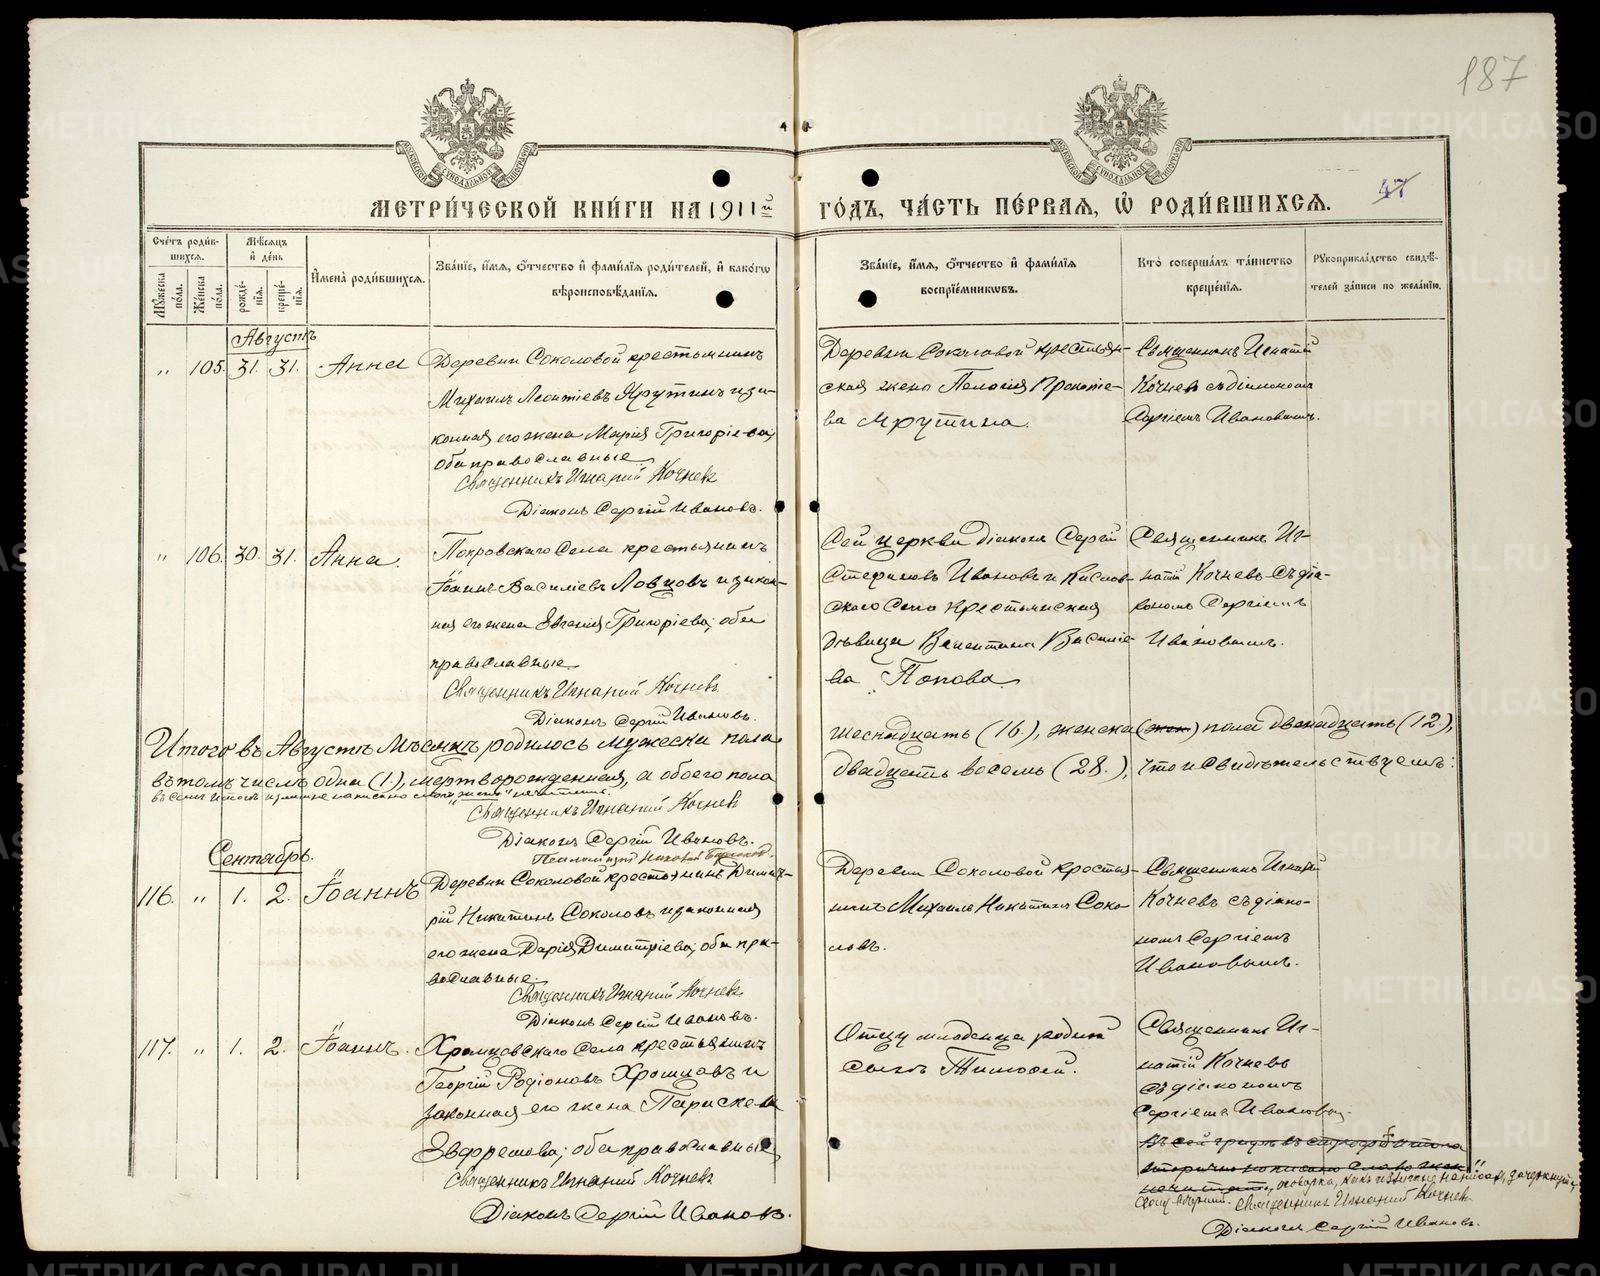 187
МЕТРИ́ЧЕСКОЙ КНИ́ГИ НА 1911й ГО́ДЪ, ЧА́СТЬ ПЕ́РВАЯ, Ѡ҆ РОДИ́ВШИХСЯ.
47
Сче́тъ роди́в-
шихся.
Мѣ́сяцъ
и҆ де́нь
Мꙋ́жеска по́ла.
Же́нска по́ла.
рожде́-
нїя.
креще́-
нїя.
И҆мена̀ роди́вшихся.
Зва́нїе, и҆́мя, ѻ҆́тчество и҆ фами́лїя роди́телей, и҆ како́гѡ
вѣроисповѣ́данїя.
Зва́нїе, и҆́мя, ѻ҆́тчество и҆ фами́лїя
воспрїе́мникѡвъ.
Кто̀ соверша́лъ та́инство
креще́нїя.
Рꙋкоприкла́дство свидѣ́-
телей за́писи по жела́нїю.
Августъ
" 105. 31. 31. Анна
Деревни Соколовой крестьянинъ
Михаилъ Леонтіевъ Ярутинъ и за-
конная его жена Марія Григоріева,
оба православные
Священникъ Игнатій Кочневъ
Діаконъ Сергій Ивановъ.
Деревни Соколовой крестьян-
ская жена Пелагія Прокопіе-
ва Ярутина.
Священникъ Игнатій
Кочневъ съ діакономъ
Сергіемъ Ивановымъ.
" 106. 30. 31. Анна.
Покровскаго Села крестьянинъ
Іоаннъ Василіевъ Ловцовъ и закон-
ная его жена Евгенія Григоріева; оба
православные
Священникъ Игнатій Кочневъ
Діаконъ Сергій Ивановъ.
Сей церкви діаконъ Сергій
Стефановъ Ивановъ и Кислов-
скаго Села крестьянская
дѣвица Валентина Василіе-
ва Попова
Священникъ Иг-
натій Кочневъ съ діа-
кономъ Сергіемъ
Ивановымъ.
Итого въ Августѣ Мѣсяцѣ родилось мужеска пола
шестнадцать (16.), женска (жен.) пола двенадцать (12.),
въ томъ числѣ одна (1.), мертворожденная, а обоего пола
двадцать восемь (28.), что и свидѣтельствуемъ:
въ семъ итогѣ излишне написано слово "жен." не читать.
Священникъ Игнатій Кочневъ
Діаконъ Сергій Ивановъ.
Псаломщикъ Николай
Сентябрь.
116. " 1. 2. Іоаннъ
Деревни Соколовой крестьянинъ Димит-
рій Никитинъ Соколовъ и законная
его жена Дарія Димитріева; оба пра-
вославные.
Священникъ Игнатій Кочневъ
Діаконъ Сергій Ивановъ.
Деревни Соколовой крестья-
нинъ Михаилъ Никитинъ Соко-
ловъ.
Священникъ Игнатій
Кочневъ съ діако-
номъ Сергіемъ
Ивановымъ.
117. " 1. 2. Іоаннъ.
Храмцовскаго Села крестьянинъ
Георгій Родіоновъ Храмцовъ и
законная его жена Параскева
Ефремова; оба православные,
Священникъ Игнатій Кочневъ
Діаконъ Сергій Ивановъ.
Отцу младенца родной
сынъ Тимофей.
Священникъ Иг-
натій Кочневъ
съ діакономъ
Сергіемъ Ивановы.
Въ сей графѣ въ строфѣ итога
вторично написано слово жен"
не читать, оговорка, какъ излишне написан, зачеркнута,
Священникъ Игнатій Кочневъ
Діаконъ Сергій Ивановъ.
METRIKI.GASO-URAL.RU